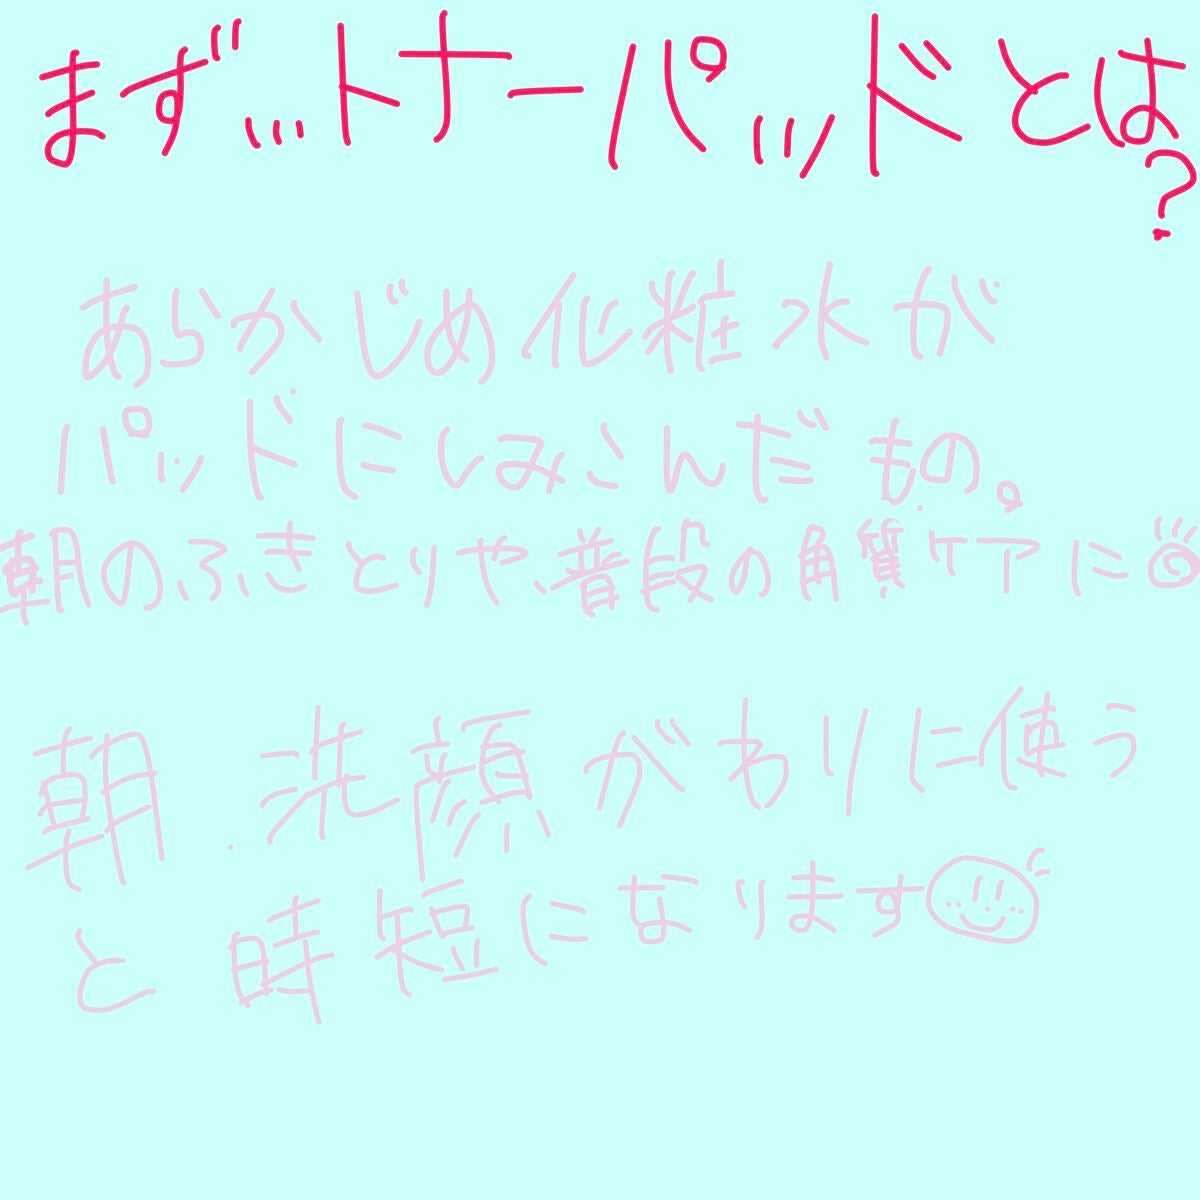 まず…トナーパッドとは
?
あらかじめ化粧水が
パッドにしみこんだもの。
朝のふきとりや、普段の角質ケアに◎
朝 洗顔がわりに使う
と時短になります